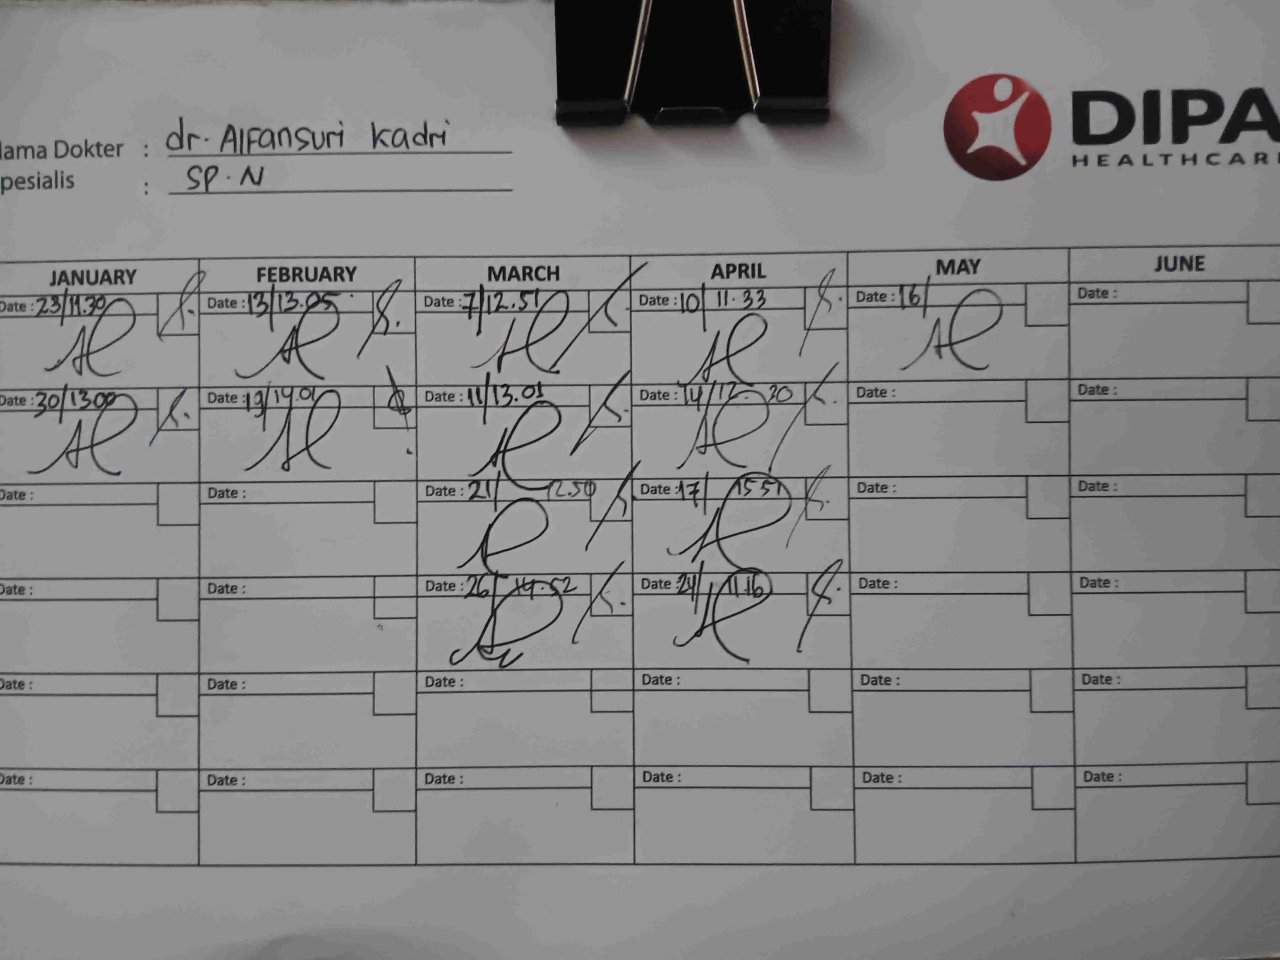 DIPA
HEALTHCAR
lama Dokter : dr. Alfansuri Kadri
pesialis : SP. N
JANUARY FEBRUARY MARCH APRIL MAY JUNE
Date : 23/11.30 Date : 13/13.05 Date : 7/12.51 Date : 10/ 11.33 Date : 16/ Date :
Date : 30/13.00 Date : 19/14.01 Date : 11/13.01 Date : 14/12.20 Date : Date :
Date : Date : Date : 21/ 12.50 Date : 17/ 15.51 Date : Date :
Date : Date : Date : 26/ 14.52 Date : 24/ 11.16 Date : Date :
Date : Date : Date : Date : Date : Date :
Date : Date : Date : Date : Date : Date :